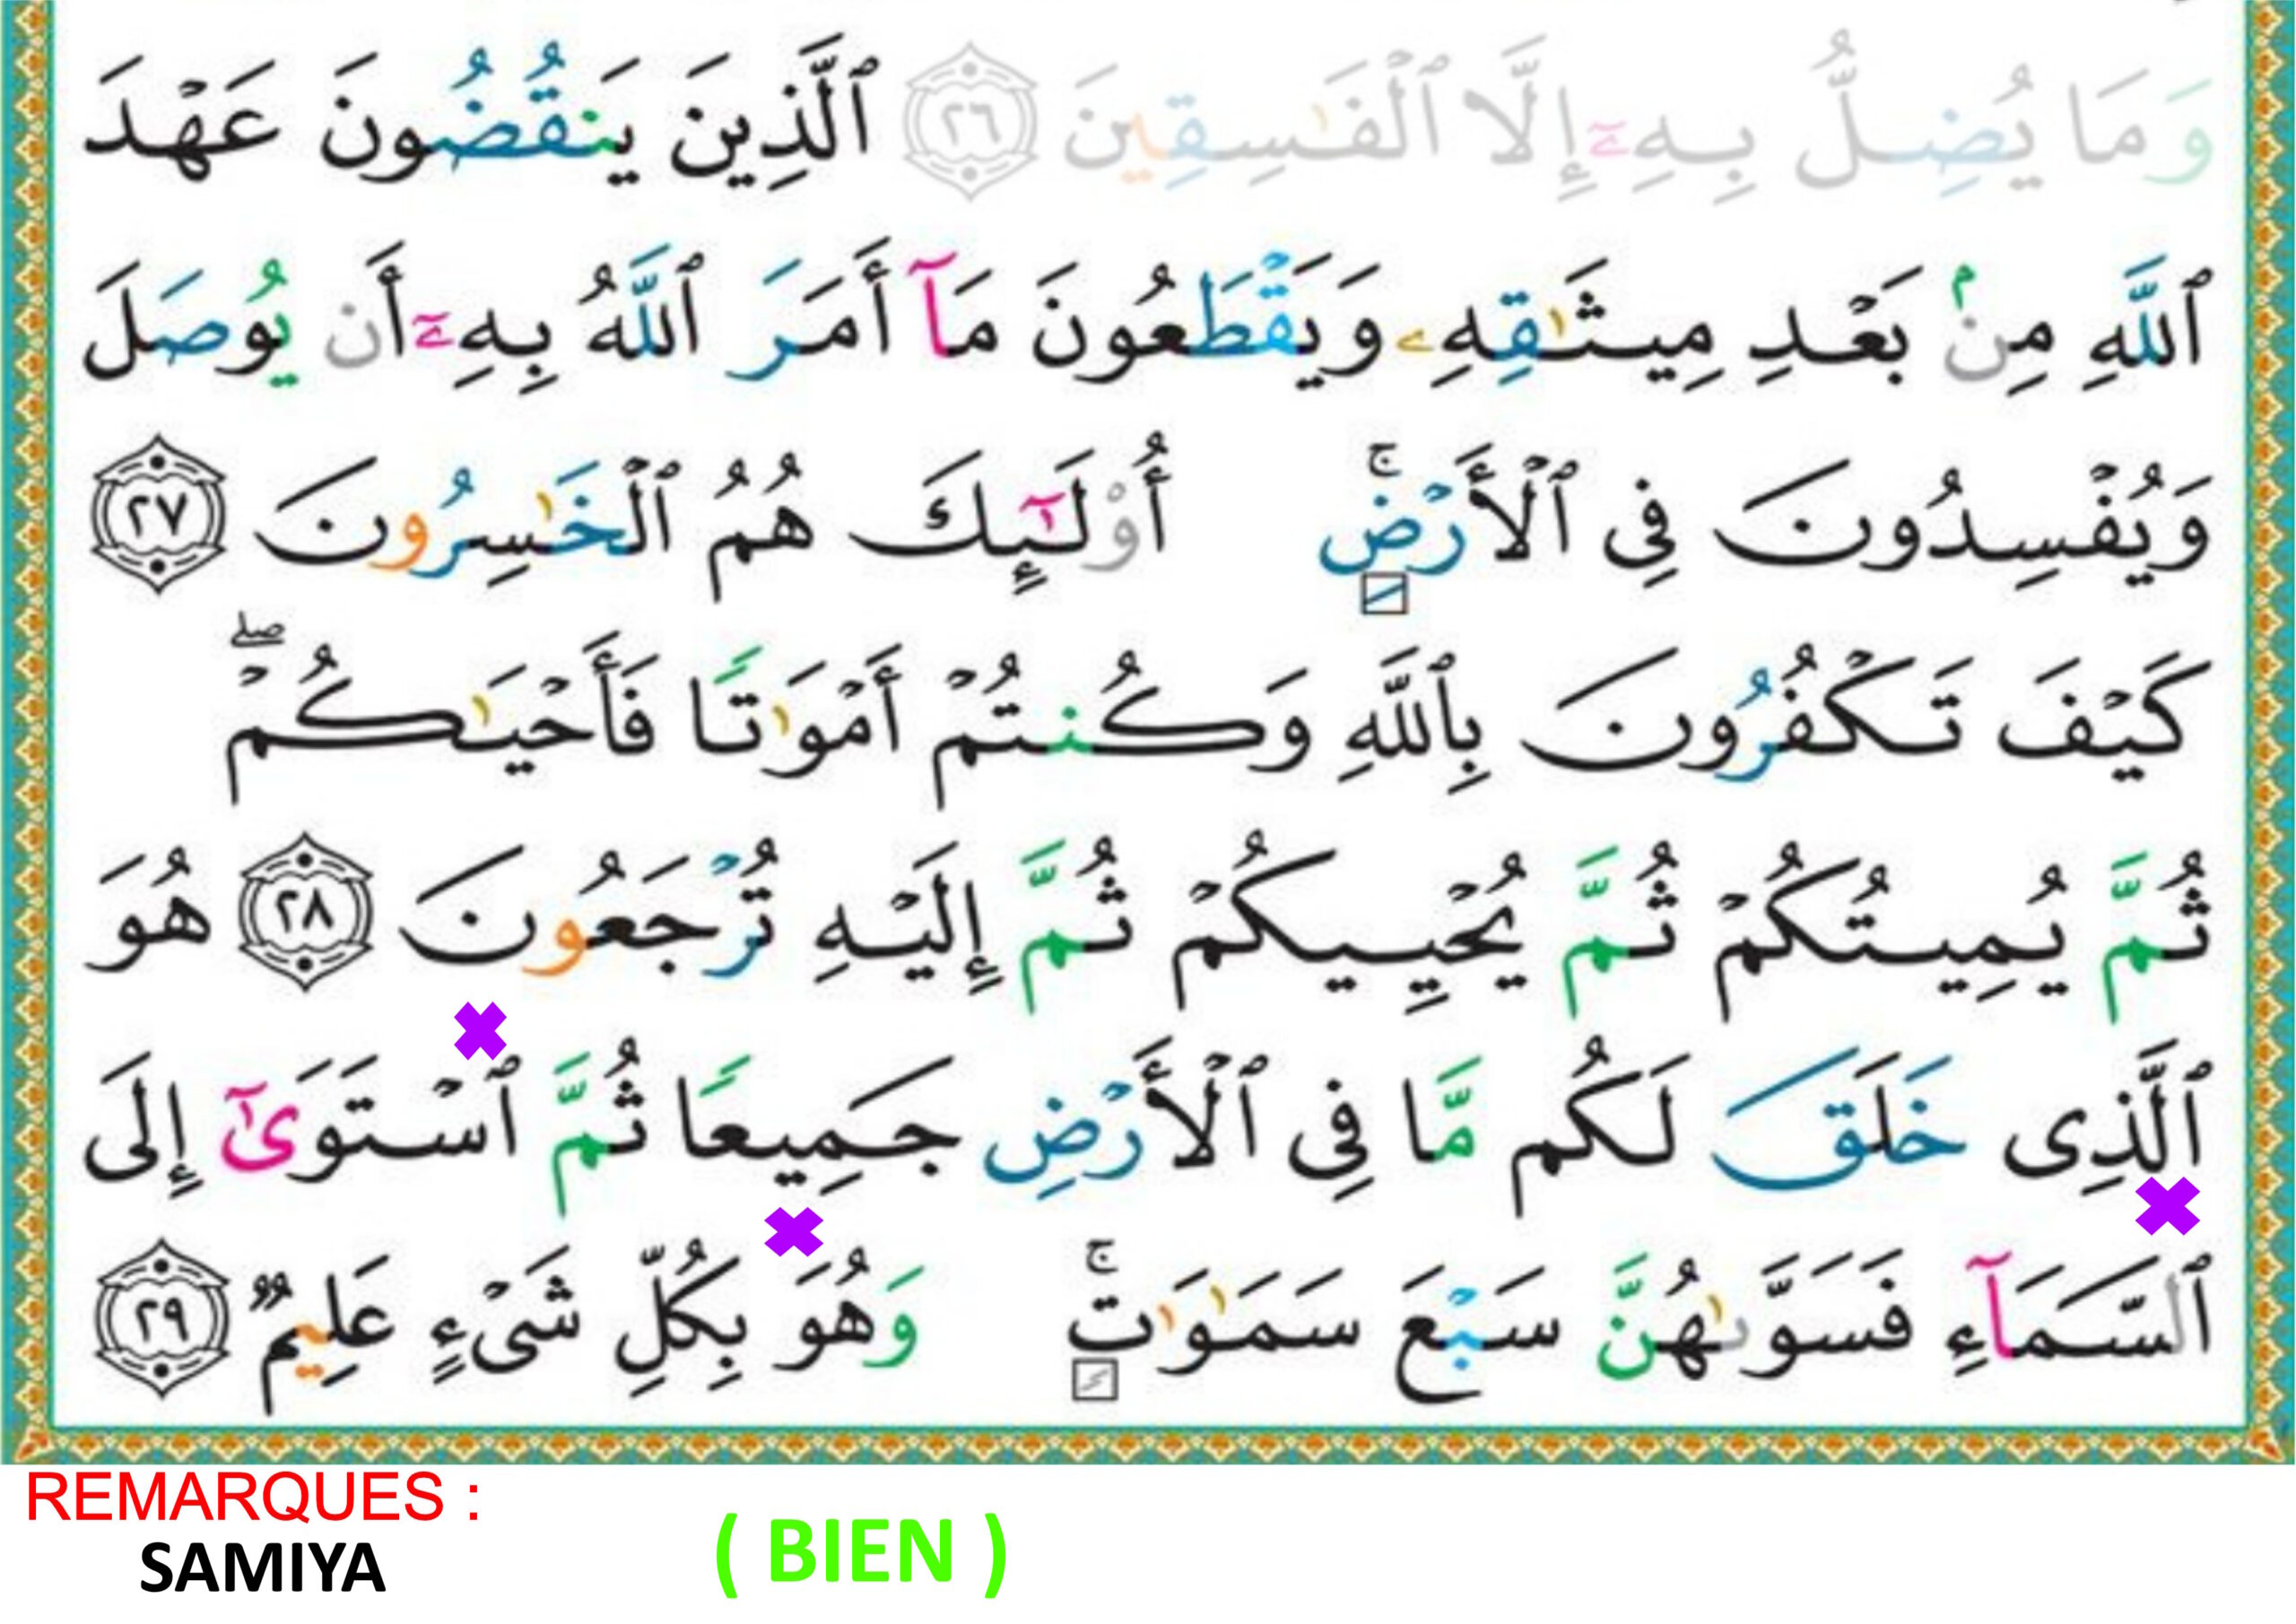 وَمَا يُضِلُّ بِهِۦٓ إِلَّا ٱلْفَـٰسِقِينَ ٢٦ ٱلَّذِينَ يَنقُضُونَ عَهْدَ
ٱللَّهِ مِنۢ بَعْدِ مِيثَـٰقِهِۦ وَيَقْطَعُونَ مَآ أَمَرَ ٱللَّهُ بِهِۦٓ أَن يُوصَلَ
وَيُفْسِدُونَ فِى ٱلْأَرْضِ ۚ أُو۟لَـٰٓئِكَ هُمُ ٱلْخَـٰسِرُونَ ٢٧
كَيْفَ تَكْفُرُونَ بِٱللَّهِ وَكُنتُمْ أَمْوَٰتًا فَأَحْيَـٰكُمْ ۖ
ثُمَّ يُمِيتُكُمْ ثُمَّ يُحْيِيكُمْ ثُمَّ إِلَيْهِ تُرْجَعُونَ ٢٨ هُوَ
ٱلَّذِى خَلَقَ لَكُم مَّا فِى ٱلْأَرْضِ جَمِيعًا ثُمَّ ٱسْتَوَىٰٓ إِلَى
ٱلسَّمَآءِ فَسَوَّىٰهُنَّ سَبْعَ سَمَـٰوَٰتٍ ۚ وَهُوَ بِكُلِّ شَىْءٍ عَلِيمٌ ٢٩
REMARQUES :
SAMIYA
( BIEN )